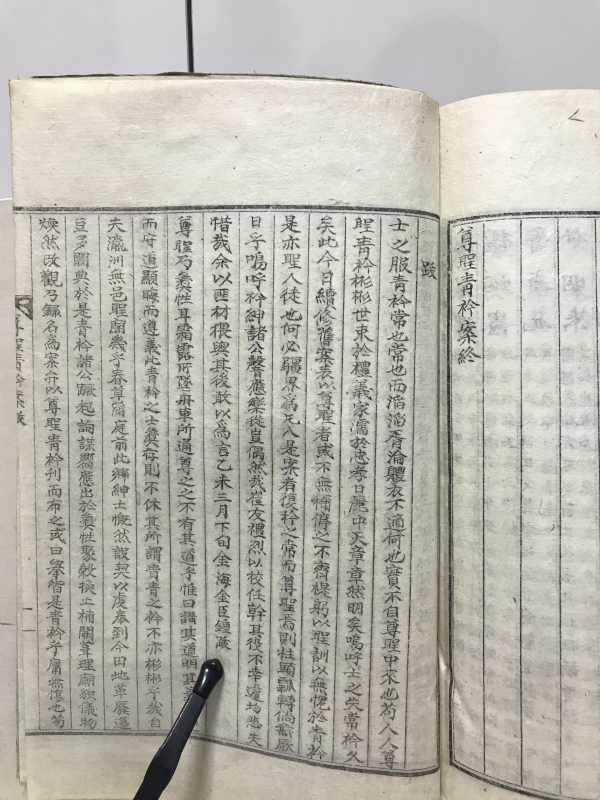 尊聖青衿案終
跋
士之服青衿常也常也而滔滔胥淪軆衣不適何也實不自尊聖中來也苟人人尊
聖青衿彬彬世柬於禮義家濡於忠孝日麗中天章章然明矣嗚呼士之失常衿久
矣此今日續修舊案表以尊聖者或不無補傳之不齊棣躬以聖訓以無愧於青衿
是亦聖人徒也何必疆界爲尺人是案者復衿之常而尊聖焉則柱顯瓢轉倘無歇
日乎嗚呼衿紳諸公聲應樂從豈偶然哉崔友禮烈以校任幹其役不幸遽均悲夫
惜哉余以匪材猥與其後敢以爲言乙未三月下旬金海金臣鍾跋
尊聖乃彛性耳霜露所墜舟車所通尊之之不有其道乎惟曰講其道明其
而守道顯晦而遵義此青衿之士彛存則不休其所謂青青之衿不亦彬彬乎哉自
夫瀛洲無邑聖廟幾乎春草滿庭前此縉紳士慨然設契以虔奉到今田地革廢籩
豆多闕典於是青衿諸公蹶起詢謀響應出於彛性聚穀換土補闕葺理廟貌儀物
煥然改觀乃錄名爲案弁以尊聖青衿刊而布之或曰擧皆是青衿乎庸無傷也苟
尊聖青衿案跋